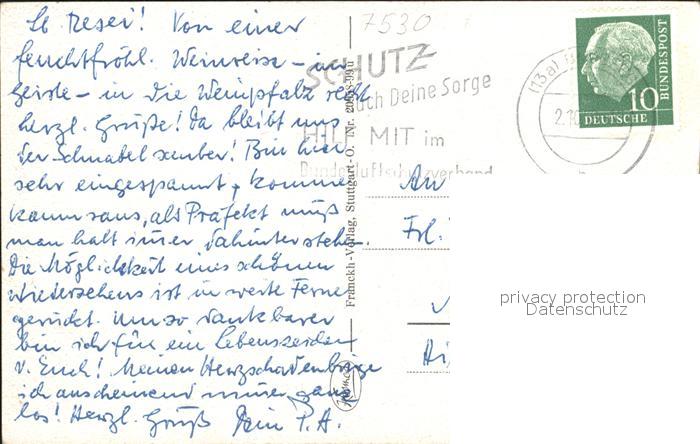 Lb. Resei! Von einer
feuchtfröhl. Weinreise – im
Geiste – in die Weinpfalz recht
herzl. Grüße! Da bleibt uns
der Schnabel sauber! Bin hier
sehr eingespannt, komme
kaum raus, als Präfekt muß
man halt immer dahinter stehn.
Die Möglichkeit eines schönen
Wiedersehens ist in weite Ferne
gerückt. Um so dankbarer
bin ich für ein Lebenszeichen
v. Euch! Meinen Herzschaden bringe
ich anscheinend nimmer ganz
los! Herzl. Gruß Dein P.A.
Franckh-Verlag, Stuttgart-O.
7530
SCHUTZ
auch Deine Sorge
HILF MIT im
Bundesluftschutzverband
(13a)
2.10
10
DEUTSCHE
BUNDESPOST
An
Frl.
privacy protection
Datenschutz